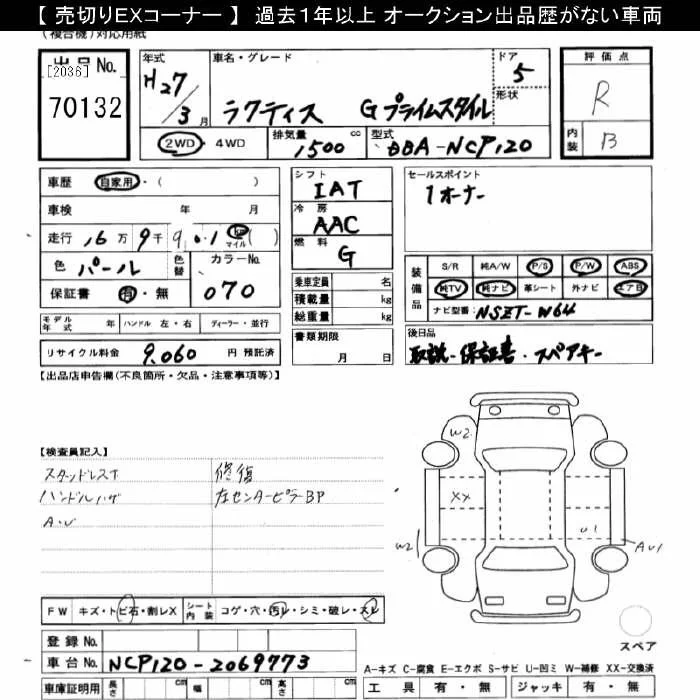 【 売切りEXコーナー 】 過去１年以上 オークション出品歴がない車両
(複合機)対応用紙
出品No.
[2036]
70132
年式
H27/3月
車名・グレード
ラクティス Gプライムスタイル
ドア
5
形状
2WD・4WD
排気量
1500 cc
型式
DBA-NCP120
評価点
R
内装
B
車歴 自家用・( )
車検 年 月
走行 16万9千9 0.1 km マイル ( )
色 パール 色替 カラーNo.
保証書 有・無 070
シフト
IAT
冷房
AAC
燃料
G
乗車定員 名
積載量 kg
総重量 kg
セールスポイント
1オーナー
装備品
S/R 純A/W P/S P/W ABS
純TV 純ナビ 革シート 外ナビ エアB
ナビ型番: NSZT-W64
モデル年式 年 ハンドル 左・右 ディーラー・並行
リサイクル料金 9,060 円 預託済
書類期限
月 日
後日品
取説・保証書・スペアキー
【出品店申告欄(不良箇所・欠品・注意事項等)】
【検査員記入】
修復
ハンドル
左センターピラーBP
W2
XX
U1
W2
AU1
FW キズ・トビ石・割レX シート内装 コゲ・穴・汚レ・シミ・破レ・スレ
登録No.
車台No. NCP120-2069773
車庫証明用 長さ cm 幅 cm 高さ cm
スペア
A-キズ C-腐食 E-エクボ S-サビ U-凹ミ W-補修 XX-交換済
工具 有・無 ジャッキ 有・無